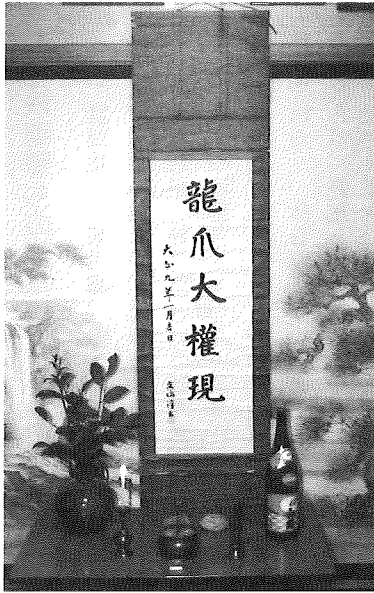 龍爪大權現
大正九年一月吉日